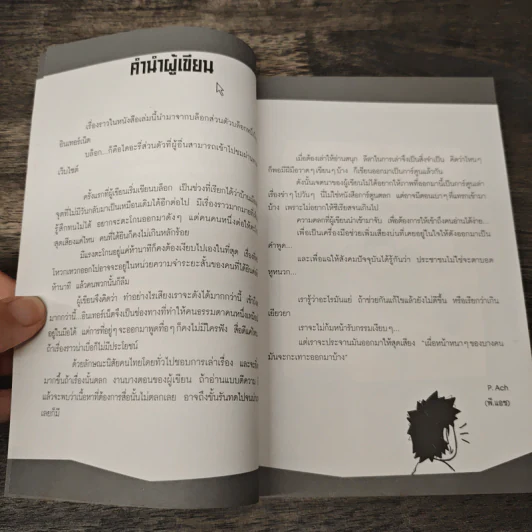 คำนำผู้เขียน
เรื่องราวในหนังสือเล่มนี้นำมาจากบล็อกส่วนตัวบล็อกหนึ่ง
อินเทอร์เน็ต
บล็อก...ก็คือไดอะรี่ส่วนตัวที่ผู้อื่นสามารถเข้าไปชมผ่าน
เว็บไซต์
ครั้งแรกที่ผู้เขียนเริ่มเขียนบล็อก เป็นช่วงที่เรียกได้ว่าบ้านเมือง
จุดที่ไม่มีวันกลับมาเป็นเหมือนเดิมได้อีกต่อไป มีเรื่องราวมากมายที่
รู้สึกทนไม่ได้ อยากจะตะโกนออกมาดังๆ แต่คนคนหนึ่งต่อให้
สุดเสียงแค่ไหน คนที่ได้ยินก็คงไม่เกินหลักร้อย
มีแรงตะโกนอยู่แค่ห้านาทีก็คงต้องเงียบไปเองในที่สุด เรื่องที่
โหวกเหวกออกไปอาจจะอยู่ในหน่วยความจำระยะสั้นของคนที่ได้ยิน
ห้านาที แล้วคนพวกนั้นก็ลืม
ผู้เขียนจึงคิดว่า ทำอย่างไรเสียงเราจะดังได้มากกว่านี้
มากกว่านี้...อินเทอร์เน็ตจึงเป็นช่องทางที่ทำให้คนธรรมดาคนหนึ่ง
อยู่ในมือได้ แต่การที่อยู่ๆ จะออกมาพูดทื่อๆ ก็คงไม่มีใครฟัง
ถ้าเรื่องราวน่าเบื่อก็ไม่มีประโยชน์
ด้วยลักษณะนิสัยคนไทยโดยทั่วไปชอบการเล่าเรื่อง และจะ
มากขึ้นถ้าเรื่องนั้นตลก งานบางตอนของผู้เขียน ถ้าอ่านแบบตีความ
แล้วจะพบว่าเนื้อหาที่ต้องการสื่อนั้นไม่ตลกเลย อาจถึงขั้นรันทดไปจน
เลยก็มี
เมื่อต้องเล่าให้อ่านสนุก ลีลาในการเล่าจึงเป็นสิ่งจำเป็น คิดว่าไหนๆ
ก็พอมีฝีมือวาดๆ เขียนๆ บ้าง ก็เขียนออกมาเป็นการ์ตูนแล้วกัน
ดังนั้นเจตนาของผู้เขียนไม่ได้อยากให้ภาพที่ออกมานี้เป็นการ์ตูนเล่า
เรื่องขำๆ ไปวันๆ นี่ไม่ใช่หนังสือการ์ตูนตลก แต่อาจมีตอนแปะๆ ที่แทรกเข้ามา
บ้าง เพราะไม่อยากให้ซีเรียสจนเกินไป
ความตลกที่ผู้เขียนนำเข้ามาจับ เพื่อต้องการให้เข้าถึงคนอ่านได้ง่าย...
เพื่อเป็นเครื่องมือช่วยเพิ่มเสียงบ่นที่เคยอยู่ในใจให้ดังออกมาเป็น
คำพูด...
และเพื่อแฉให้สังคมปัจจุบันได้รู้กันว่า ประชาชนไม่ใช่จะตาบอด
หูหนวก...
เรารู้ว่าอะไรมันแย่ ถ้าช่วยกันแก้ไขแล้วยังไม่ดีขึ้น หรือเรียกว่าเกิน
เยียวยา
เราจะไม่ก้มหน้ารับกรรมเงียบๆ...
แต่เราจะประจานมันออกมาให้สุดเสียง "เมื่อหน้าหนาๆ ของบางคน
มันจะกะเทาะออกมาบ้าง"
P. Ach
(พี.แอช)